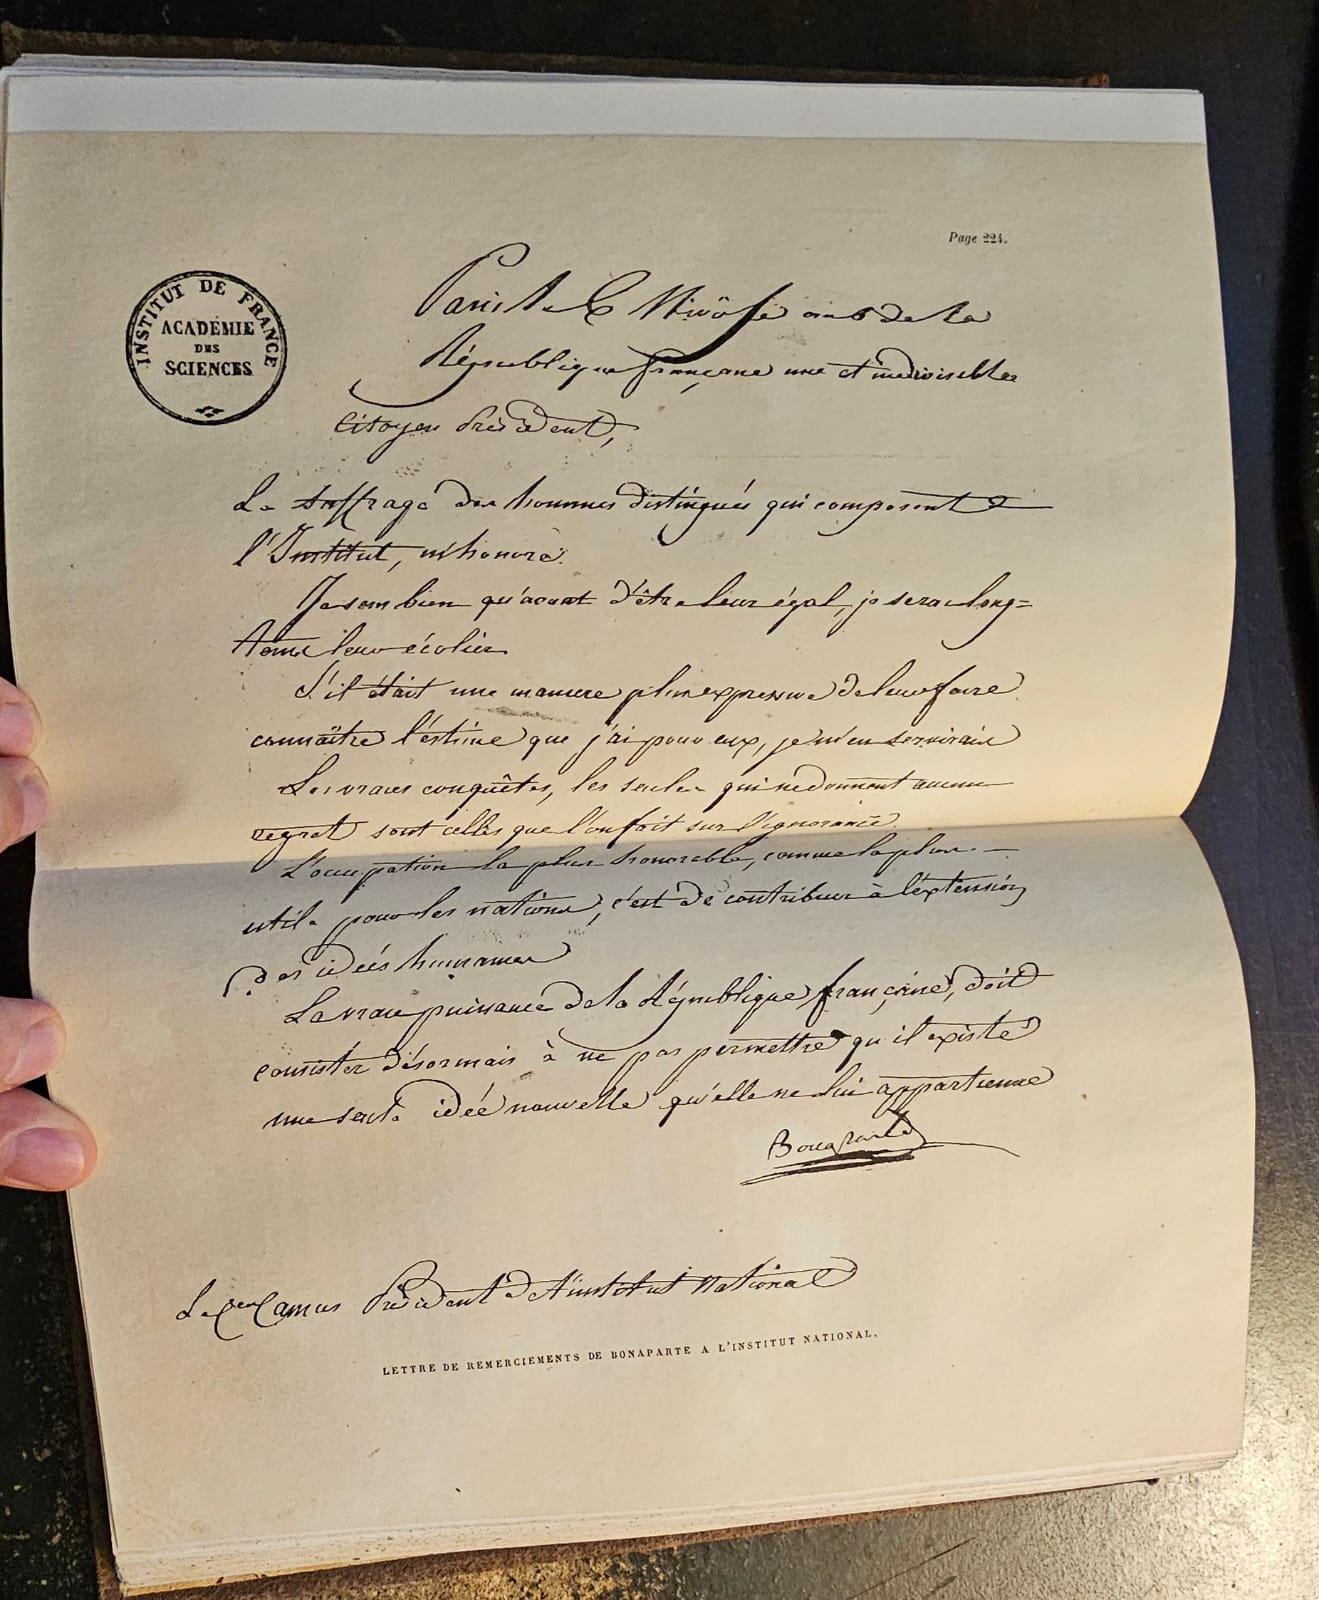 Page 224.
INSTITUT DE FRANCE
ACADÉMIE
DES
SCIENCES
Paris le 6 Nivôse an 6 de la
République française une et indivisible
Citoyen Président,
Le suffrage des hommes distingués qui composent
l'Institut, m'honore.
Je sens bien qu'avant d'être leur égal, je serai long=
tems leur écolier
S'il était une maniere plus expressive de leur faire
connaître l'estime que j'ai pour eux, je m'en servirais
Les vraies conquêtes, les seules qui ne donnent aucun
regret sont celles que l'on fait sur l'ignorance.
L'occupation la plus honorable, comme la plus
utile pour les nations, c'est de contribuer à l'extension
des idées humaines
La vraie puissance de la République française, doit
consister désormais à ne pas permettre qu'il existe
une seule idée nouvelle qu'elle ne lui appartienne
Bonaparte
Le Cen Camus Président de l'institut national
LETTRE DE REMERCIEMENTS DE BONAPARTE A L'INSTITUT NATIONAL.